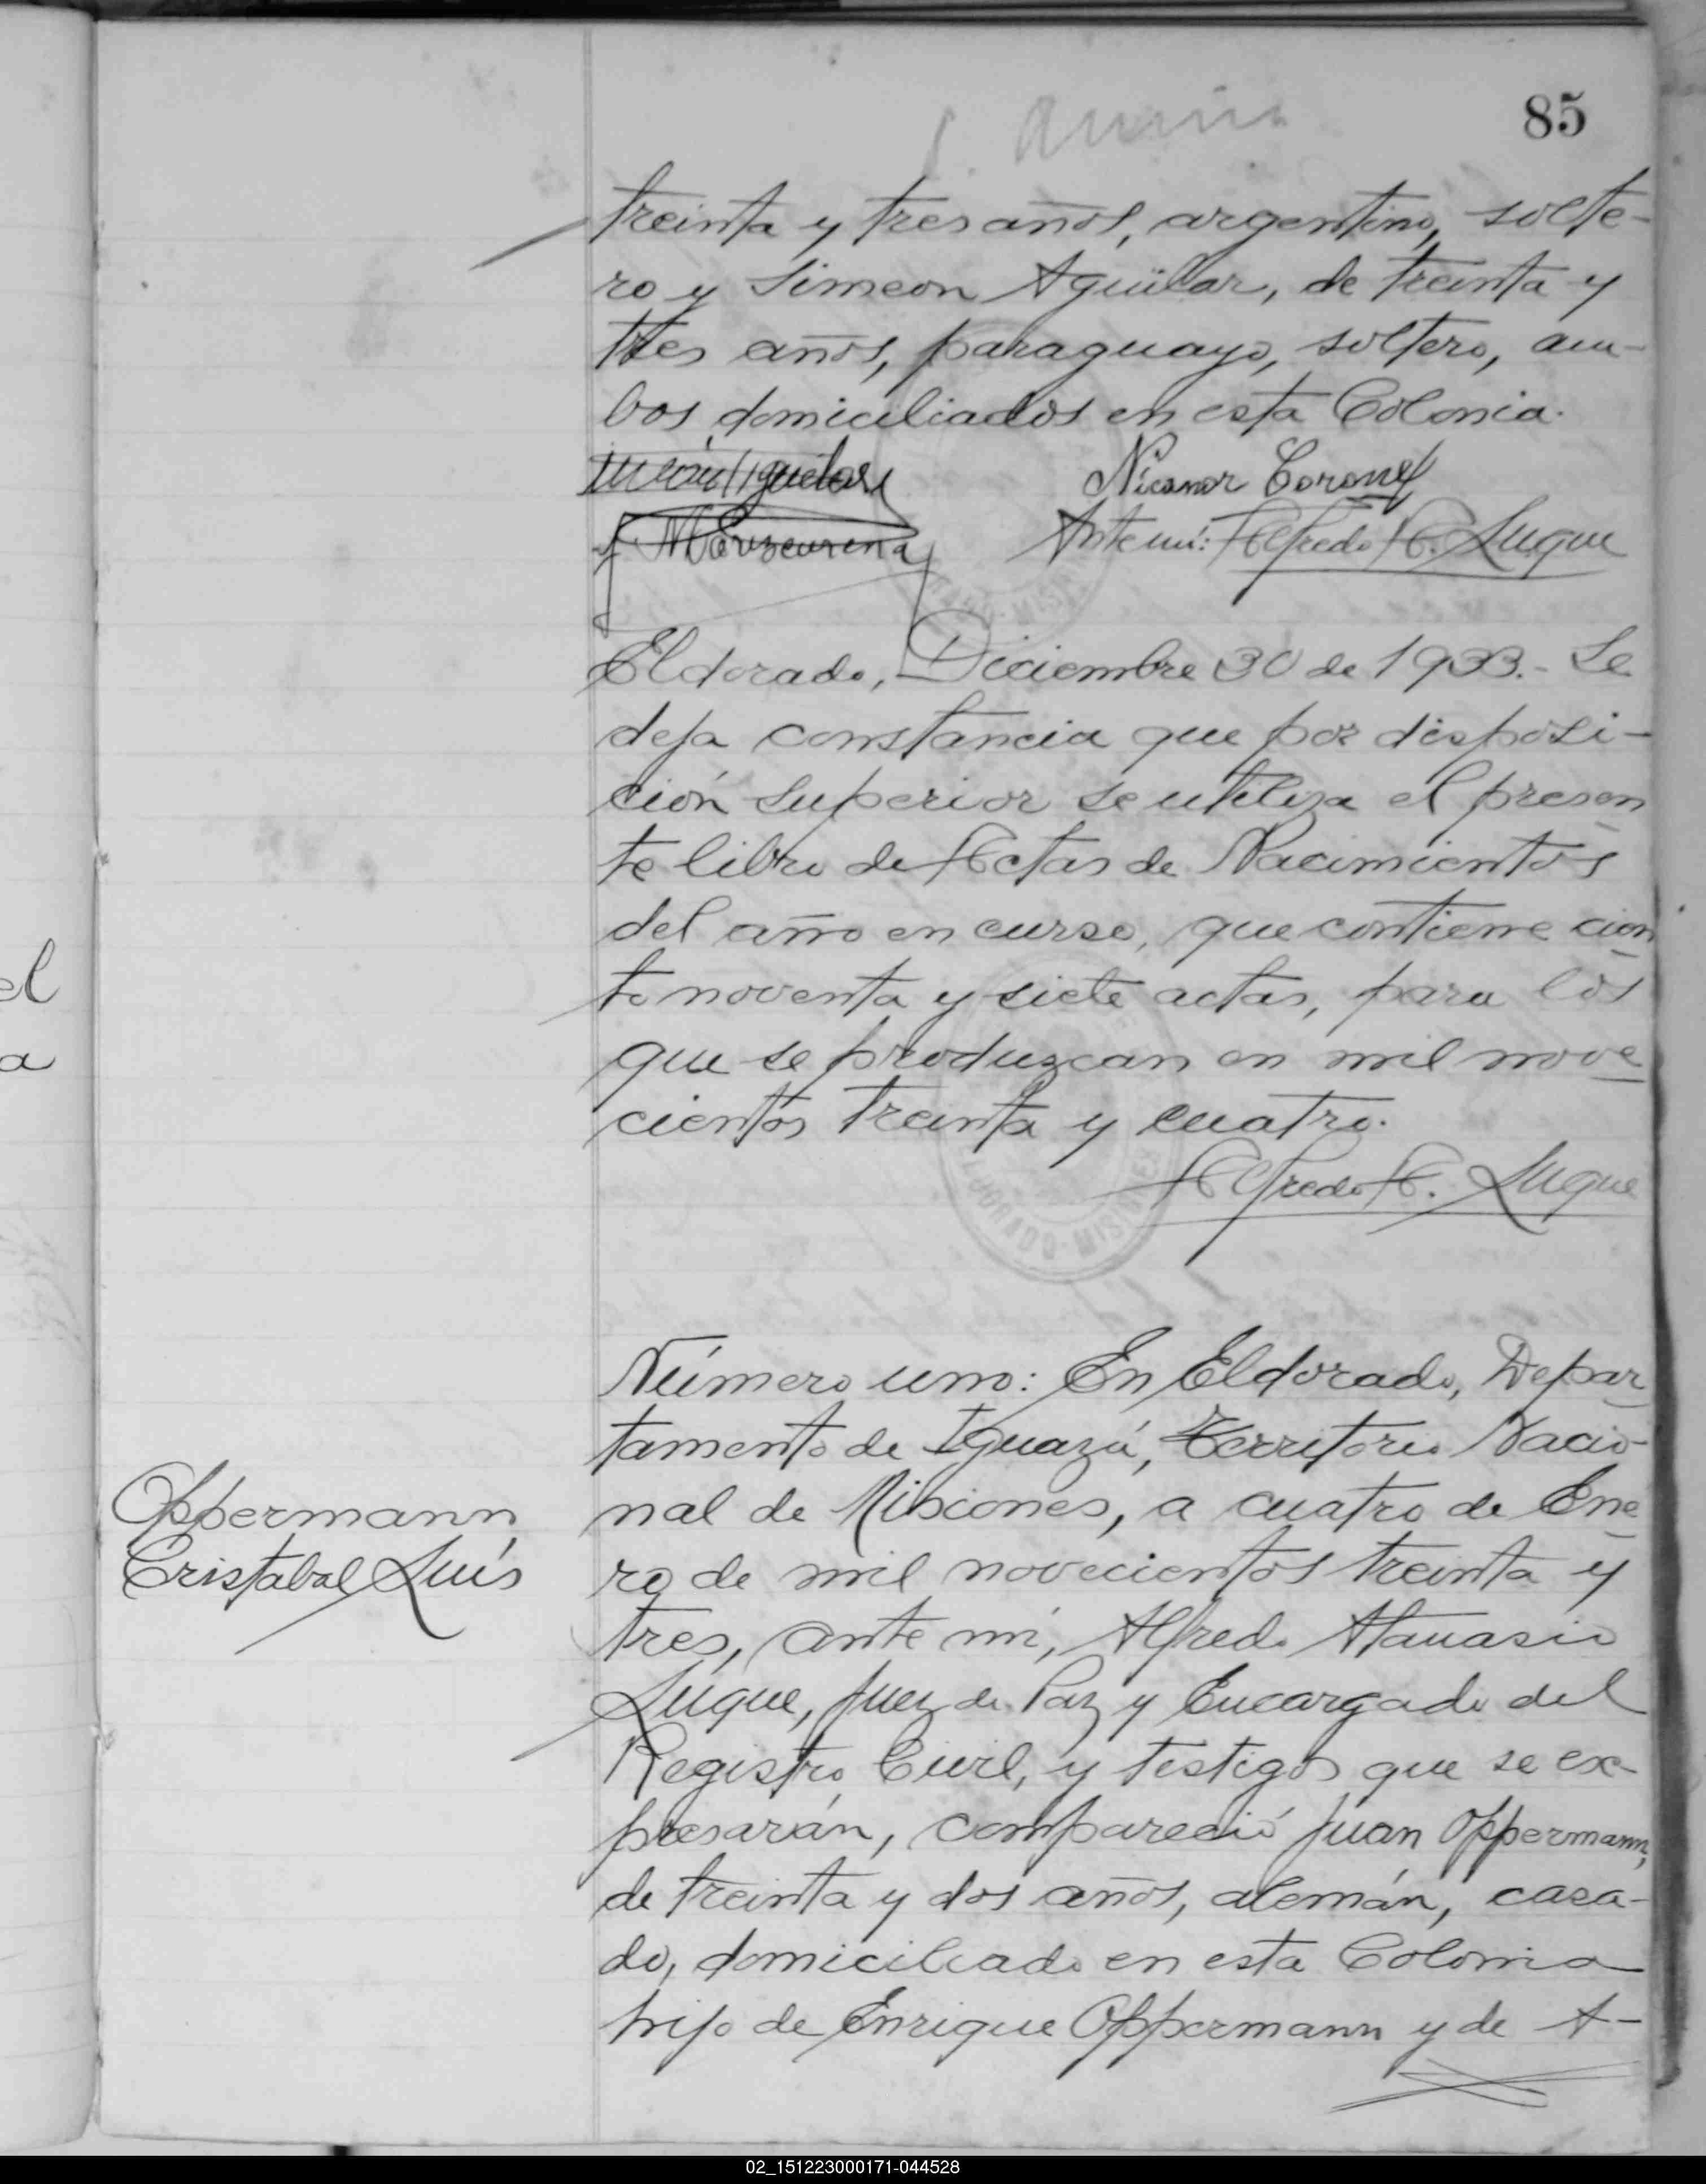 85
treinta y tres años, argentino, solte-
ro y Simeon Aguilar, de treinta y
tres años, paraguayo, soltero, am-
bos domiciliados en esta Colonia.
Nicanor Coronel
Ante mi: Alfredo A. Luque
Eldorado, Diciembre 30 de 1933.- Se
deja constancia que por disposi-
ción superior se utiliza el presen
te libro de Actas de Nacimientos
del año en curso, que contiene cien
to noventa y siete actas, para los
que se produzcan en mil nove
cientos treinta y cuatro.
Alfredo A. Luque
el
a
Número uno: En Eldorado, Depar
tamento de Iguazú, Territorio Nacio-
nal de Misiones, a cuatro de Ene
ro de mil novecientos treinta y
tres, ante mi, Alfredo Atanasio
Luque, Juez de Paz y Encargado del
Registro Civil, y testigos que se ex-
presarán, compareció Juan Oppermann,
de treinta y dos años, alemán, casa-
do, domiciliado en esta Colonia
hijo de Enrique Oppermann y de A-
Oppermann
Cristabal Luis
02_151223000171-044528